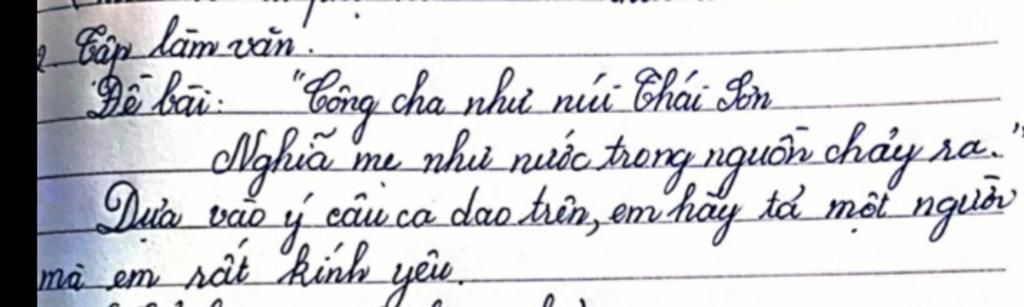 2. Tập làm văn.
Đề bài: "Công cha như núi Thái Sơn
Nghĩa mẹ như nước trong nguồn chảy ra."
Dựa vào ý câu ca dao trên, em hãy tả một người
mà em rất kính yêu.